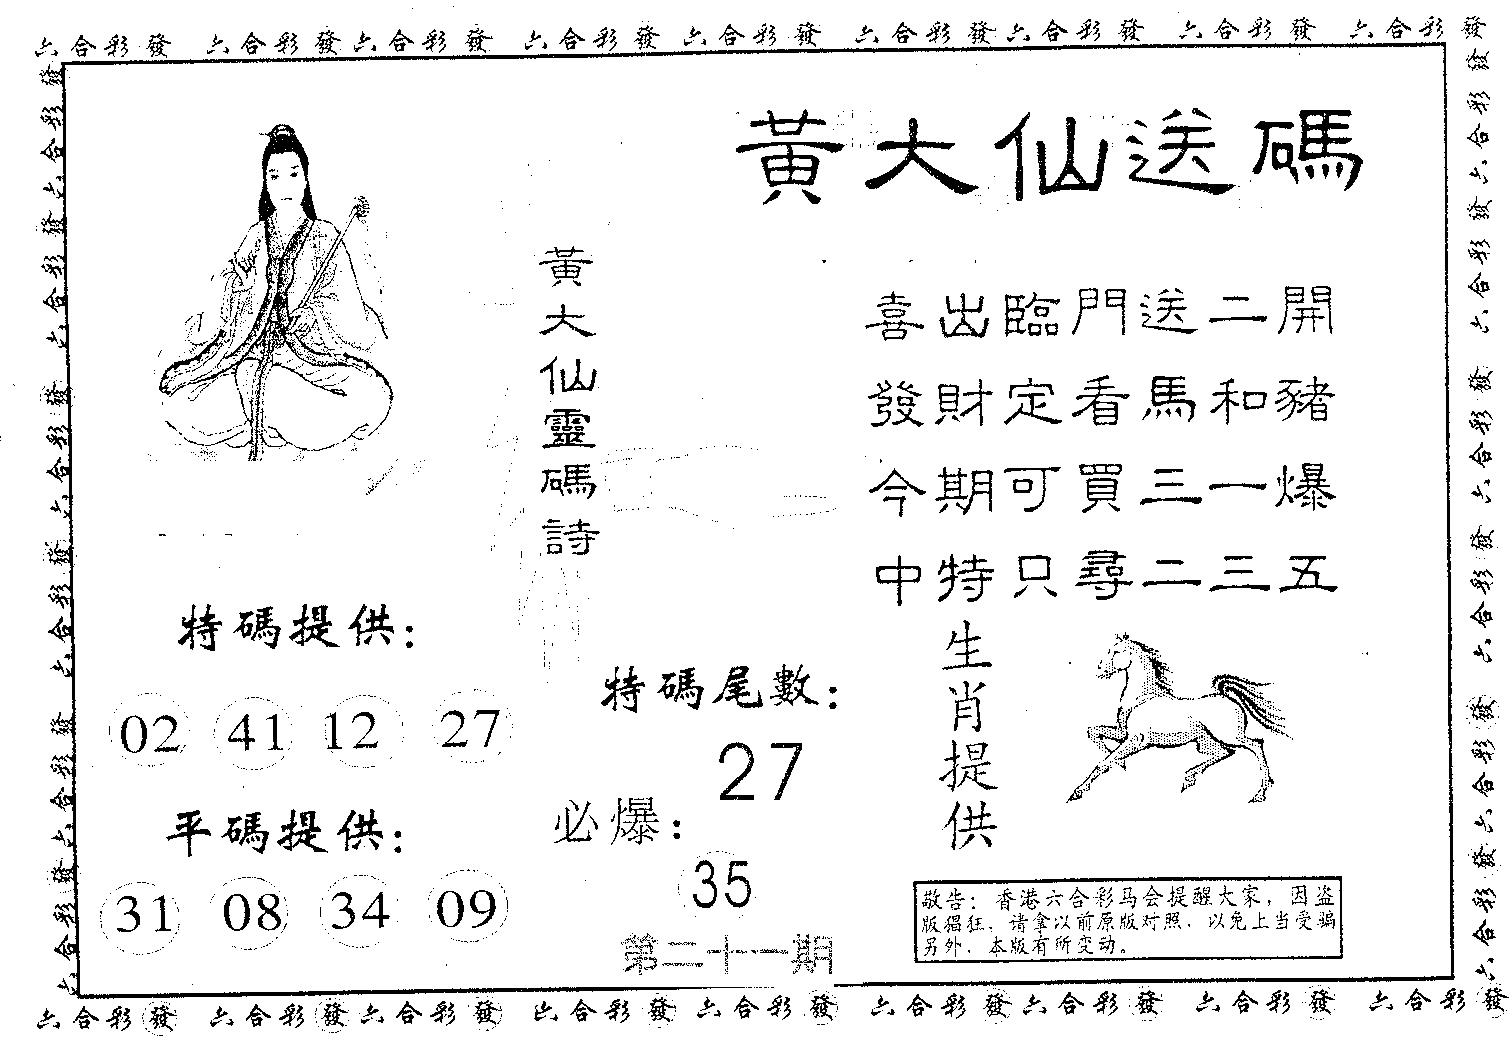 六合彩發 六合彩發六合彩發 六合彩發 六合彩發 六合彩發六合彩發 六合彩發 六合彩發
黃大仙送碼
黃大仙靈碼詩
喜出臨門送二開
發財定看馬和豬
今期可買三一爆
中特只尋二三五
特碼提供：
02 41 12 27
平碼提供：
31 08 34 09
特碼尾數：
27
必爆：
35
第二十一期
生肖提供
敬告：香港六合彩马会提醒大家，因盗
版猖狂，请拿以前原版对照，以免上当受骗
另外，本版有所变动。
發彩合六發彩合六發彩合六發彩合六發彩合六發彩合六
發彩合六發彩合六發彩合六發彩合六發彩合六發彩合六
六合彩發 六合彩發六合彩發 六合彩發 六合彩發 六合彩發六合彩發 六合彩發 六合彩發